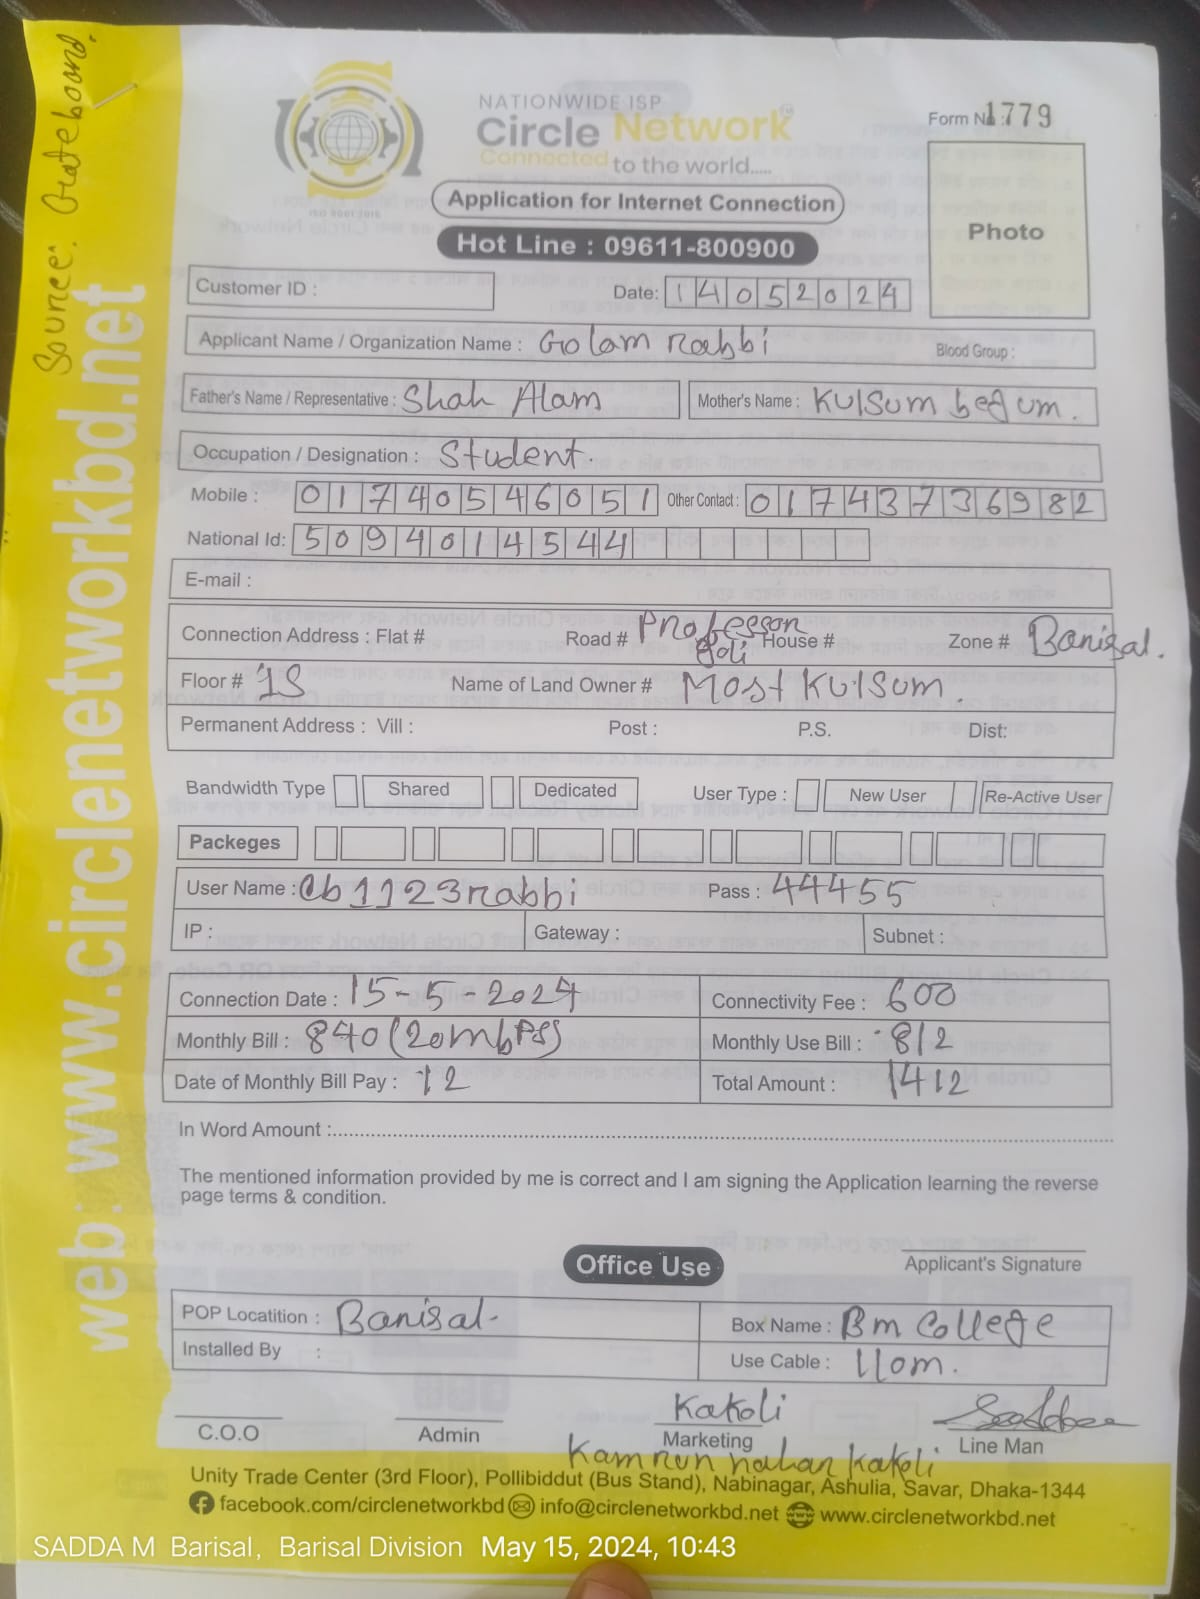 Source: Gateboard.
web: www.circlenetworkbd.net
NATIONWIDE ISP
Circle Network
Connected to the world.....
ISO 9001:2015
Form No : 1779
Application for Internet Connection
Photo
Hot Line : 09611-800900
Customer ID :
Date: 14052024
Applicant Name / Organization Name : Golam rabbi
Blood Group :
Father's Name / Representative : Shah Alam
Mother's Name : Kulsum begum.
Occupation / Designation : Student.
Mobile : 01740546051 Other Contact : 01743736982
National Id: 5094014544
E-mail :
Connection Address : Flat # Road # Professor Goli House # Zone # Barisal.
Floor # 1S Name of Land Owner # Most Kulsum.
Permanent Address : Vill : Post : P.S. Dist:
Bandwidth Type Shared Dedicated User Type : New User Re-Active User
Packeges
User Name : Cb1123rabbi Pass : 44455
IP : Gateway : Subnet :
Connection Date : 15-5-2024 Connectivity Fee : 600
Monthly Bill : 840 (20mbPSS) Monthly Use Bill : 812
Date of Monthly Bill Pay : 12 Total Amount : 1412
In Word Amount :
The mentioned information provided by me is correct and I am signing the Application learning the reverse
page terms & condition.
Applicant's Signature
Office Use
POP Locatition : Barisal- Box Name : Bm College
Installed By : Use Cable : 110m.
Kakoli
C.O.O Admin Marketing Line Man
Kamrun nahar Kakoli
Unity Trade Center (3rd Floor), Pollibiddut (Bus Stand), Nabinagar, Ashulia, Savar, Dhaka-1344
facebook.com/circlenetworkbd info@circlenetworkbd.net www.circlenetworkbd.net
SADDA M Barisal, Barisal Division May 15, 2024, 10:43